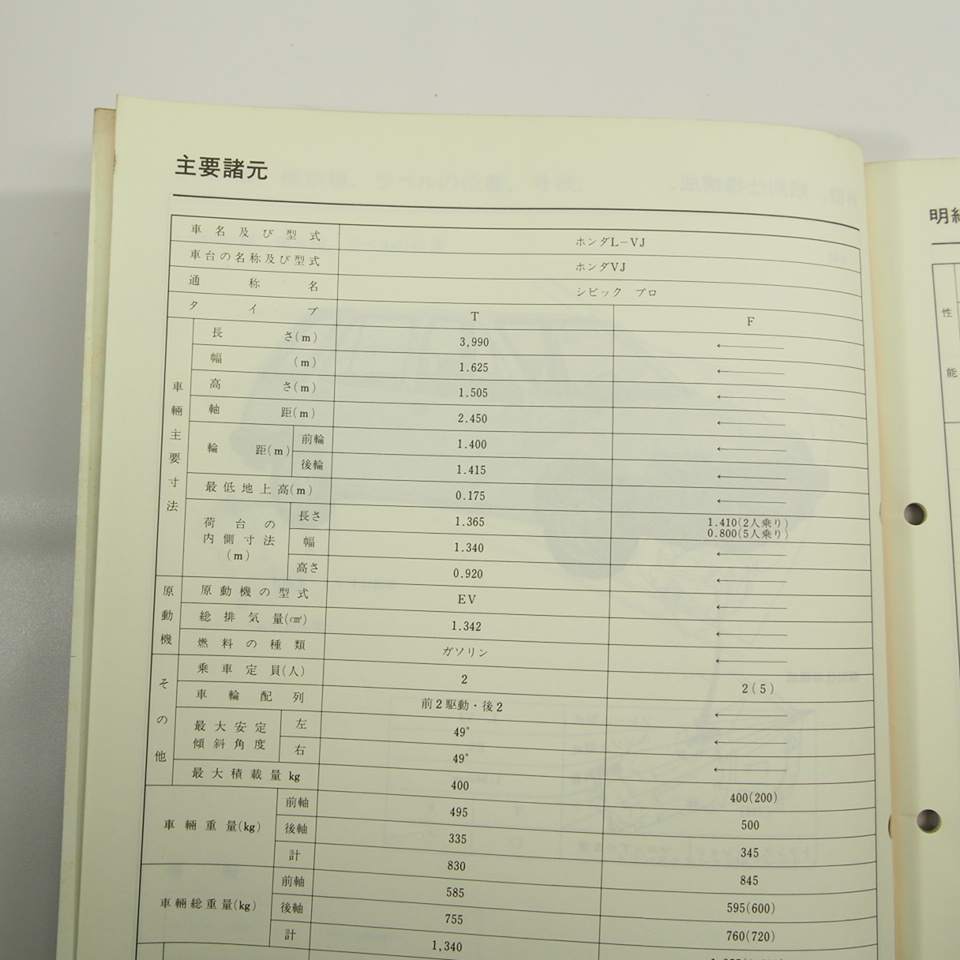 主要諸元
車名及び型式 ホンダL-VJ
車台の名称及び型式 ホンダVJ
通称名 シビック プロ
タイプ T F
車輛主要寸法
長さ(m) 3,990 ←
幅(m) 1.625 ←
高さ(m) 1.505 ←
軸距(m) 2.450 ←
輪距(m) 前輪 1.400 ←
後輪 1.415 ←
最低地上高(m) 0.175 ←
荷台の内側寸法(m) 長さ 1.365 1.410(2人乗り)
0.800(5人乗り)
幅 1.340 ←
高さ 0.920 ←
原動機
原動機の型式 EV ←
総排気量(㎤) 1.342 ←
燃料の種類 ガソリン ←
その他
乗車定員(人) 2 2(5)
車輪配列 前2駆動・後2 ←
最大安定傾斜角度 左 49° ←
右 49° ←
最大積載量kg 400 400(200)
車輛重量(kg) 前軸 495 500
後軸 335 345
計 830 845
車輛総重量(kg) 前軸 585 595(600)
後軸 755 760(720)
計 1,340
明
性
能